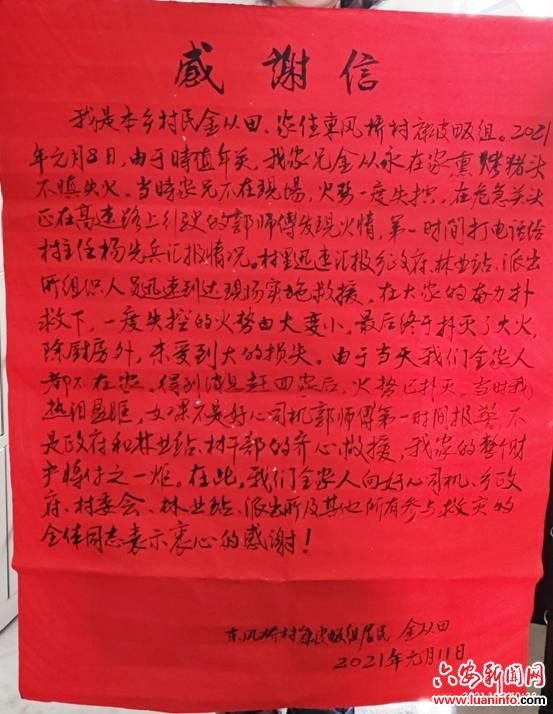 感谢信
我是本乡村民金从田、家住東风桥村 畈组。2021
年元月8日,由于時值年关,我家兄金从永在家熏烤猪头
不慎失火。当時家兄不在现場,火势一度失控,在危急关头
正在高速路上行驶的郭师傅发现火情,第一时间打电话给
村主任杨先兵汇报情况。村里迅速汇报乡政府、林业站、派出
所组织人员迅速到达现场实施救援,在大家的奋力扑
救下,一度失控的火势由大变小,最后终于扑灭了大火,
除厨房外,未受到大的损失。由于当天我们全家人
都不在家,得到消息赶回家后,火势已扑灭,当时我
热泪盈眶,如果不是好心司机郭师傅第一时间报警,不
是政府和林业站、村干部的齐心救援,我家的整个财
产将付之一炬。在此,我们全家人向好心司机、乡政
府、村委会、林业站、派出所及其他所有参与救灾的
全体同志表示衷心的感谢!
东风桥村 畈组居民 金从田
2021年元月11日
六安新闻网
www.luaninfo.com